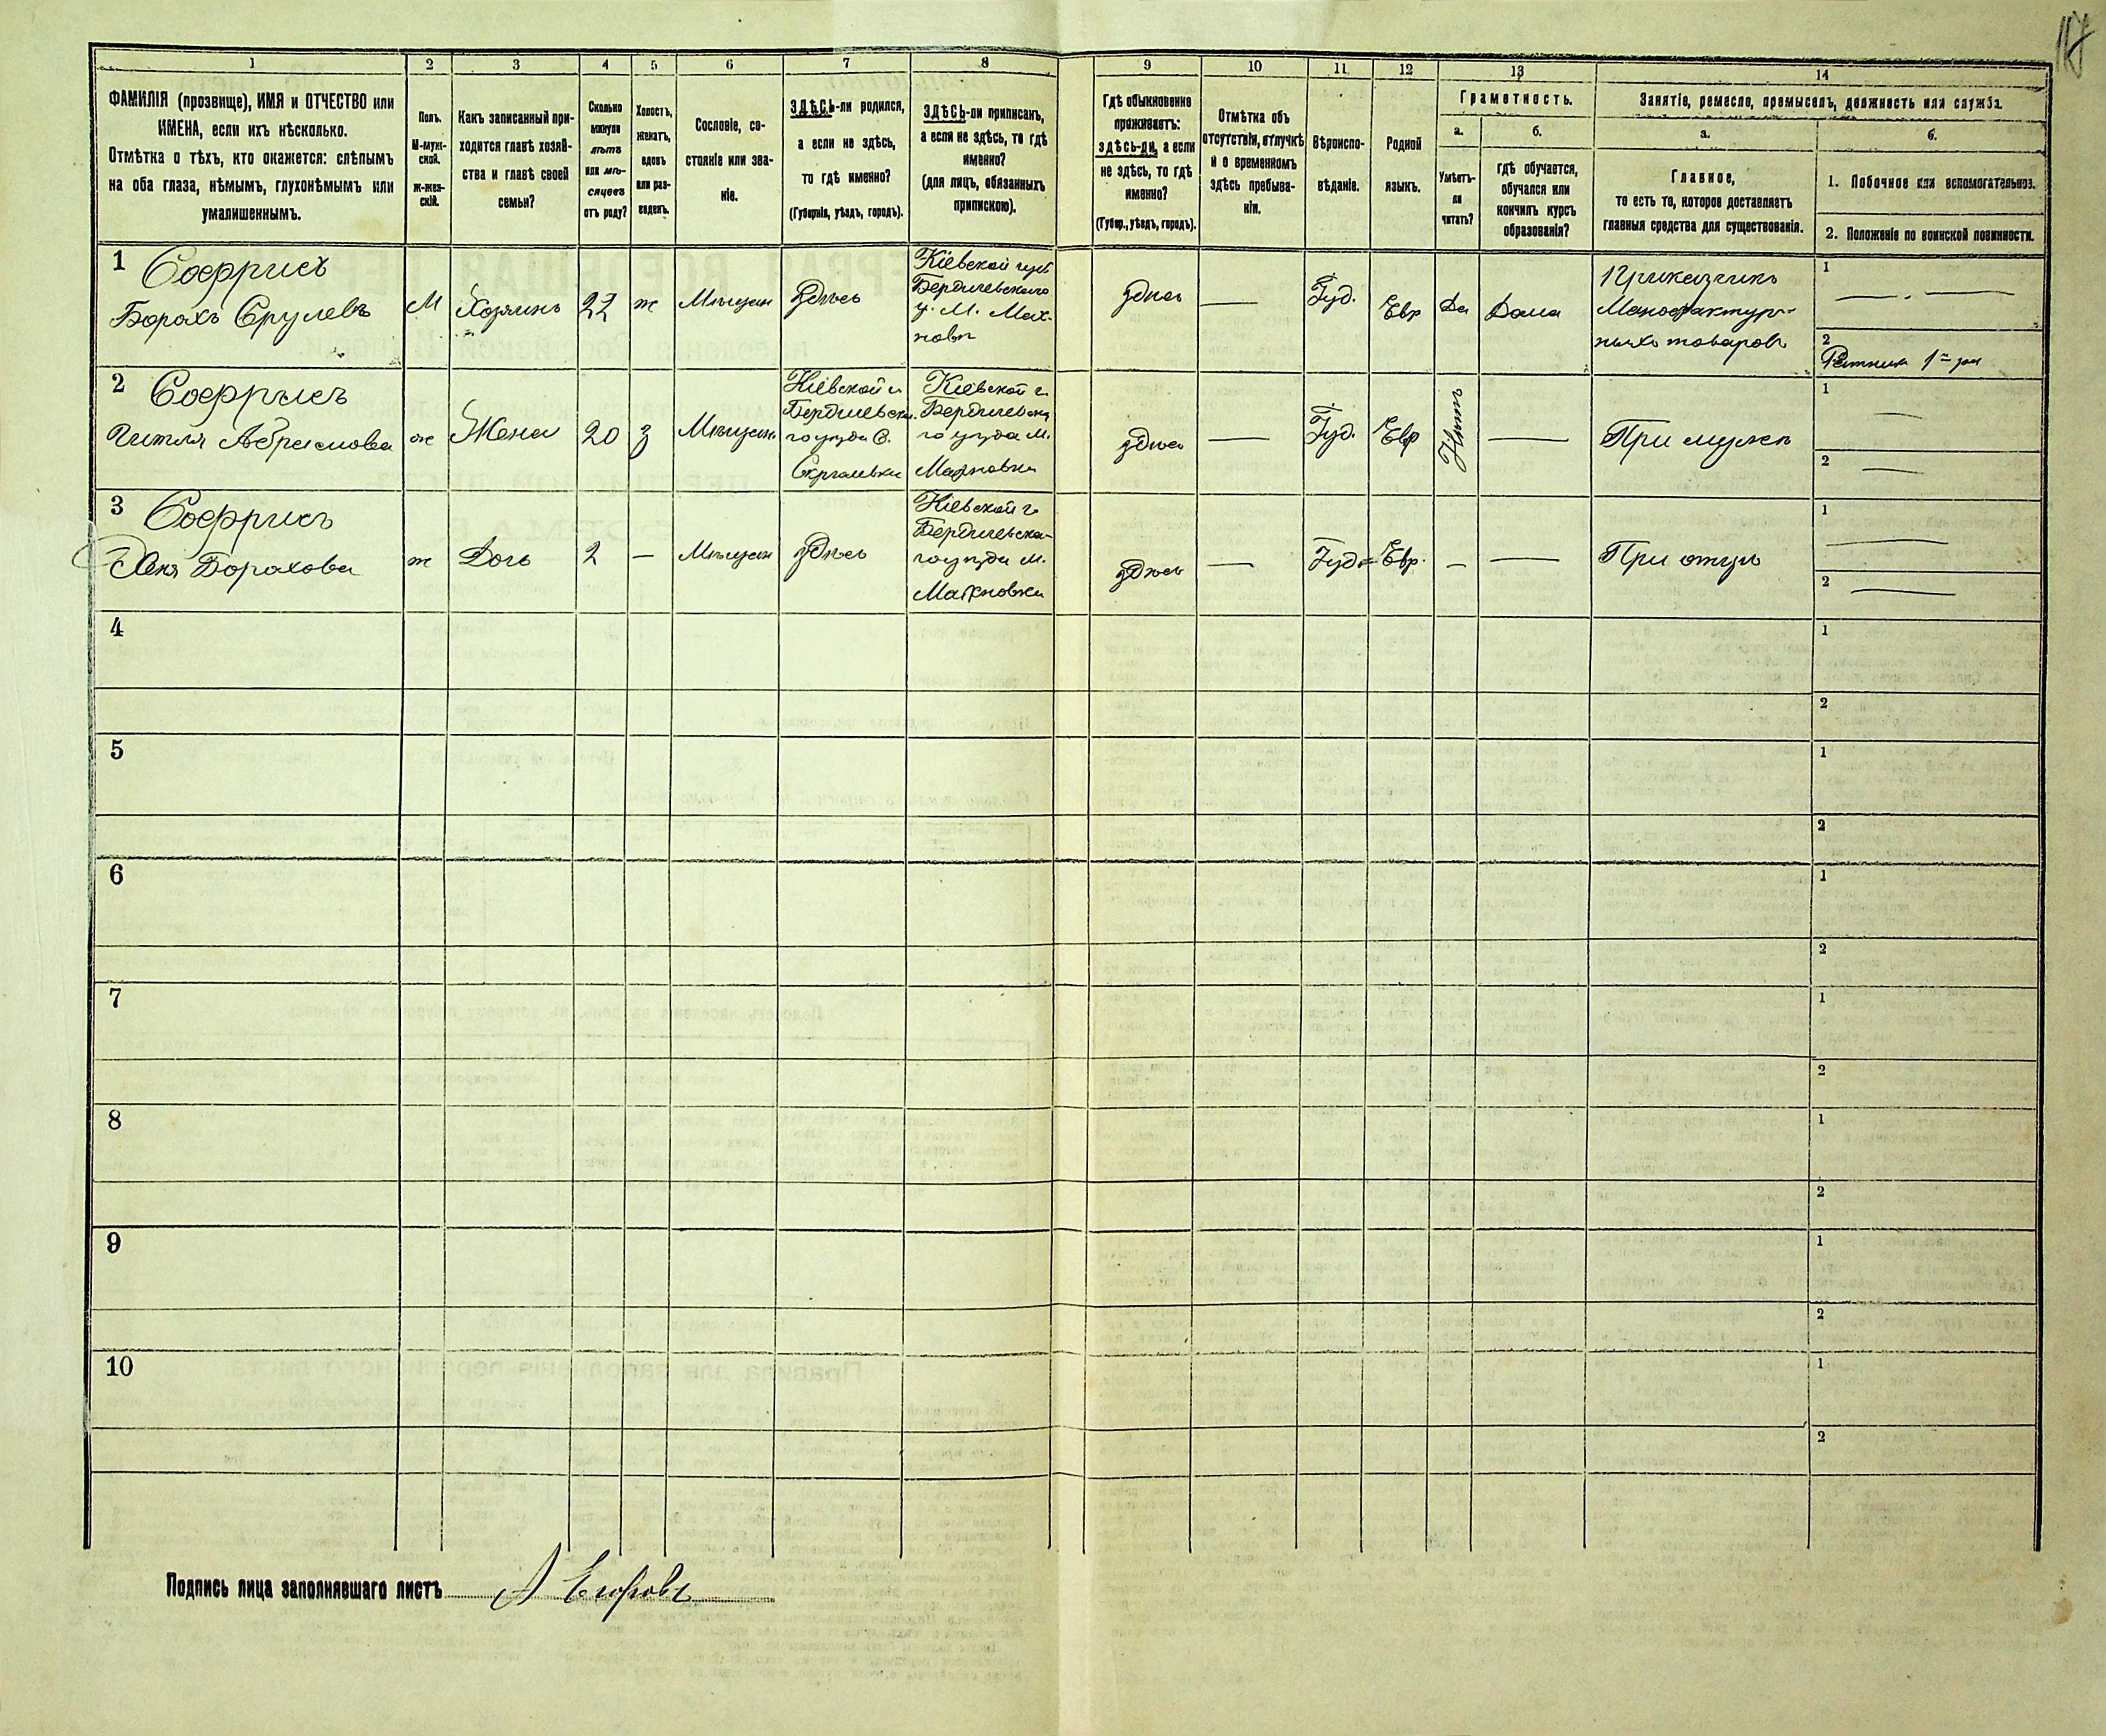 117
1 2 3 4 5 6 7 8 9 10 11 12 13 14
ФАМИЛІЯ (прозвище), ИМЯ и ОТЧЕСТВО или
ИМЕНА, если ихъ нѣсколько.
Отмѣтка о тѣхъ, кто окажется: слѣпымъ
на оба глаза, нѣмымъ, глухонѣмымъ или
умалишеннымъ.
Полъ.
М-муж-
ской.
ж-жен-
скій.
Какъ записанный при-
ходится главѣ хозяй-
ства и главѣ своей
семьи?
Сколько
минуло
лѣтъ
или мѣ-
сяцевъ
отъ роду?
Холостъ,
женатъ,
вдовъ
или раз-
веденъ.
Сословіе, со-
стояніе или зва-
ніе.
ЗДѢСЬ-ли родился,
а если не здѣсь,
то гдѣ именно?
(Губернія, уѣздъ, городъ).
ЗДѢСЬ-ли приписанъ,
а если не здѣсь, то гдѣ
именно?
(для лицъ, обязанныхъ
припискою).
Гдѣ обыкновенно
проживаетъ:
здѣсь-ли, а если
не здѣсь, то гдѣ
именно?
(Губер., уѣздъ, городъ).
Отмѣтка объ
отсутствіи, отлучкѣ
и о временномъ
здѣсь пребыва-
ніи.
Вѣроиспо-
вѣданіе.
Родной
языкъ.
Грамотность.
а.
Умѣетъ-
ли
читать?
б.
гдѣ обучается,
обучался или
кончилъ курсъ
образованія?
Занятіе, ремесло, промыселъ, должность или служба.
а.
Главное,
то есть то, которое доставляетъ
главныя средства для существованія.
б.
1. Побочное или вспомогательное.
2. Положеніе по воинской повинности.
1
Соффрисъ
Борахъ Срулевъ
М
Хозяинъ
22
ж
Мѣщан
здѣсь
Кіевской губ
Бердичевского
у. М. Мах-
новки
здѣсь
—
Іуд.
Евр
Да
Дома
Приказчикъ
Мануфактур-
ныхъ товаровъ
1
— . —
2
Ратникъ 1 = раз
2
Соффрисъ
Гитля Абрамова
ж
Жена
20
з
Мѣщан.
Кіевской г.
Бердичевска-
го уѣзда С.
Кіевской г.
Бердичевска
го уѣзда М.
Махновки
здѣсь
—
Іуд.
Евр
Нѣтъ
—
При мужѣ
1
—
2
—
3
Соффрисъ
Боpахова
ж
Дочь
2
—
Мѣщан
здѣсь
Кіевской г.
Бердичевска-
го уѣзда М.
Махновки
здѣсь
—
Іуд=
Евр.
—
—
При отцѣ
1
—
2
—
4
1
2
5
1
2
6
1
2
7
1
2
8
1
2
9
1
2
10
1
2
Подпись лица заполнявшаго листъ А Егоровъ